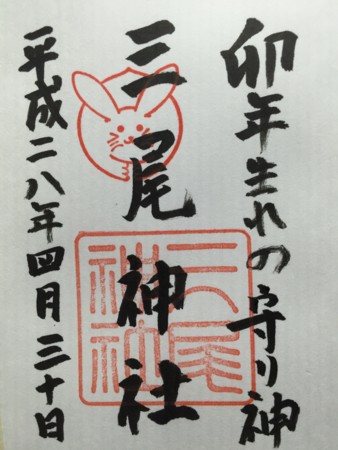 卯年生れの守り神
三尾神社
三尾神社
平成二八年四月三十日